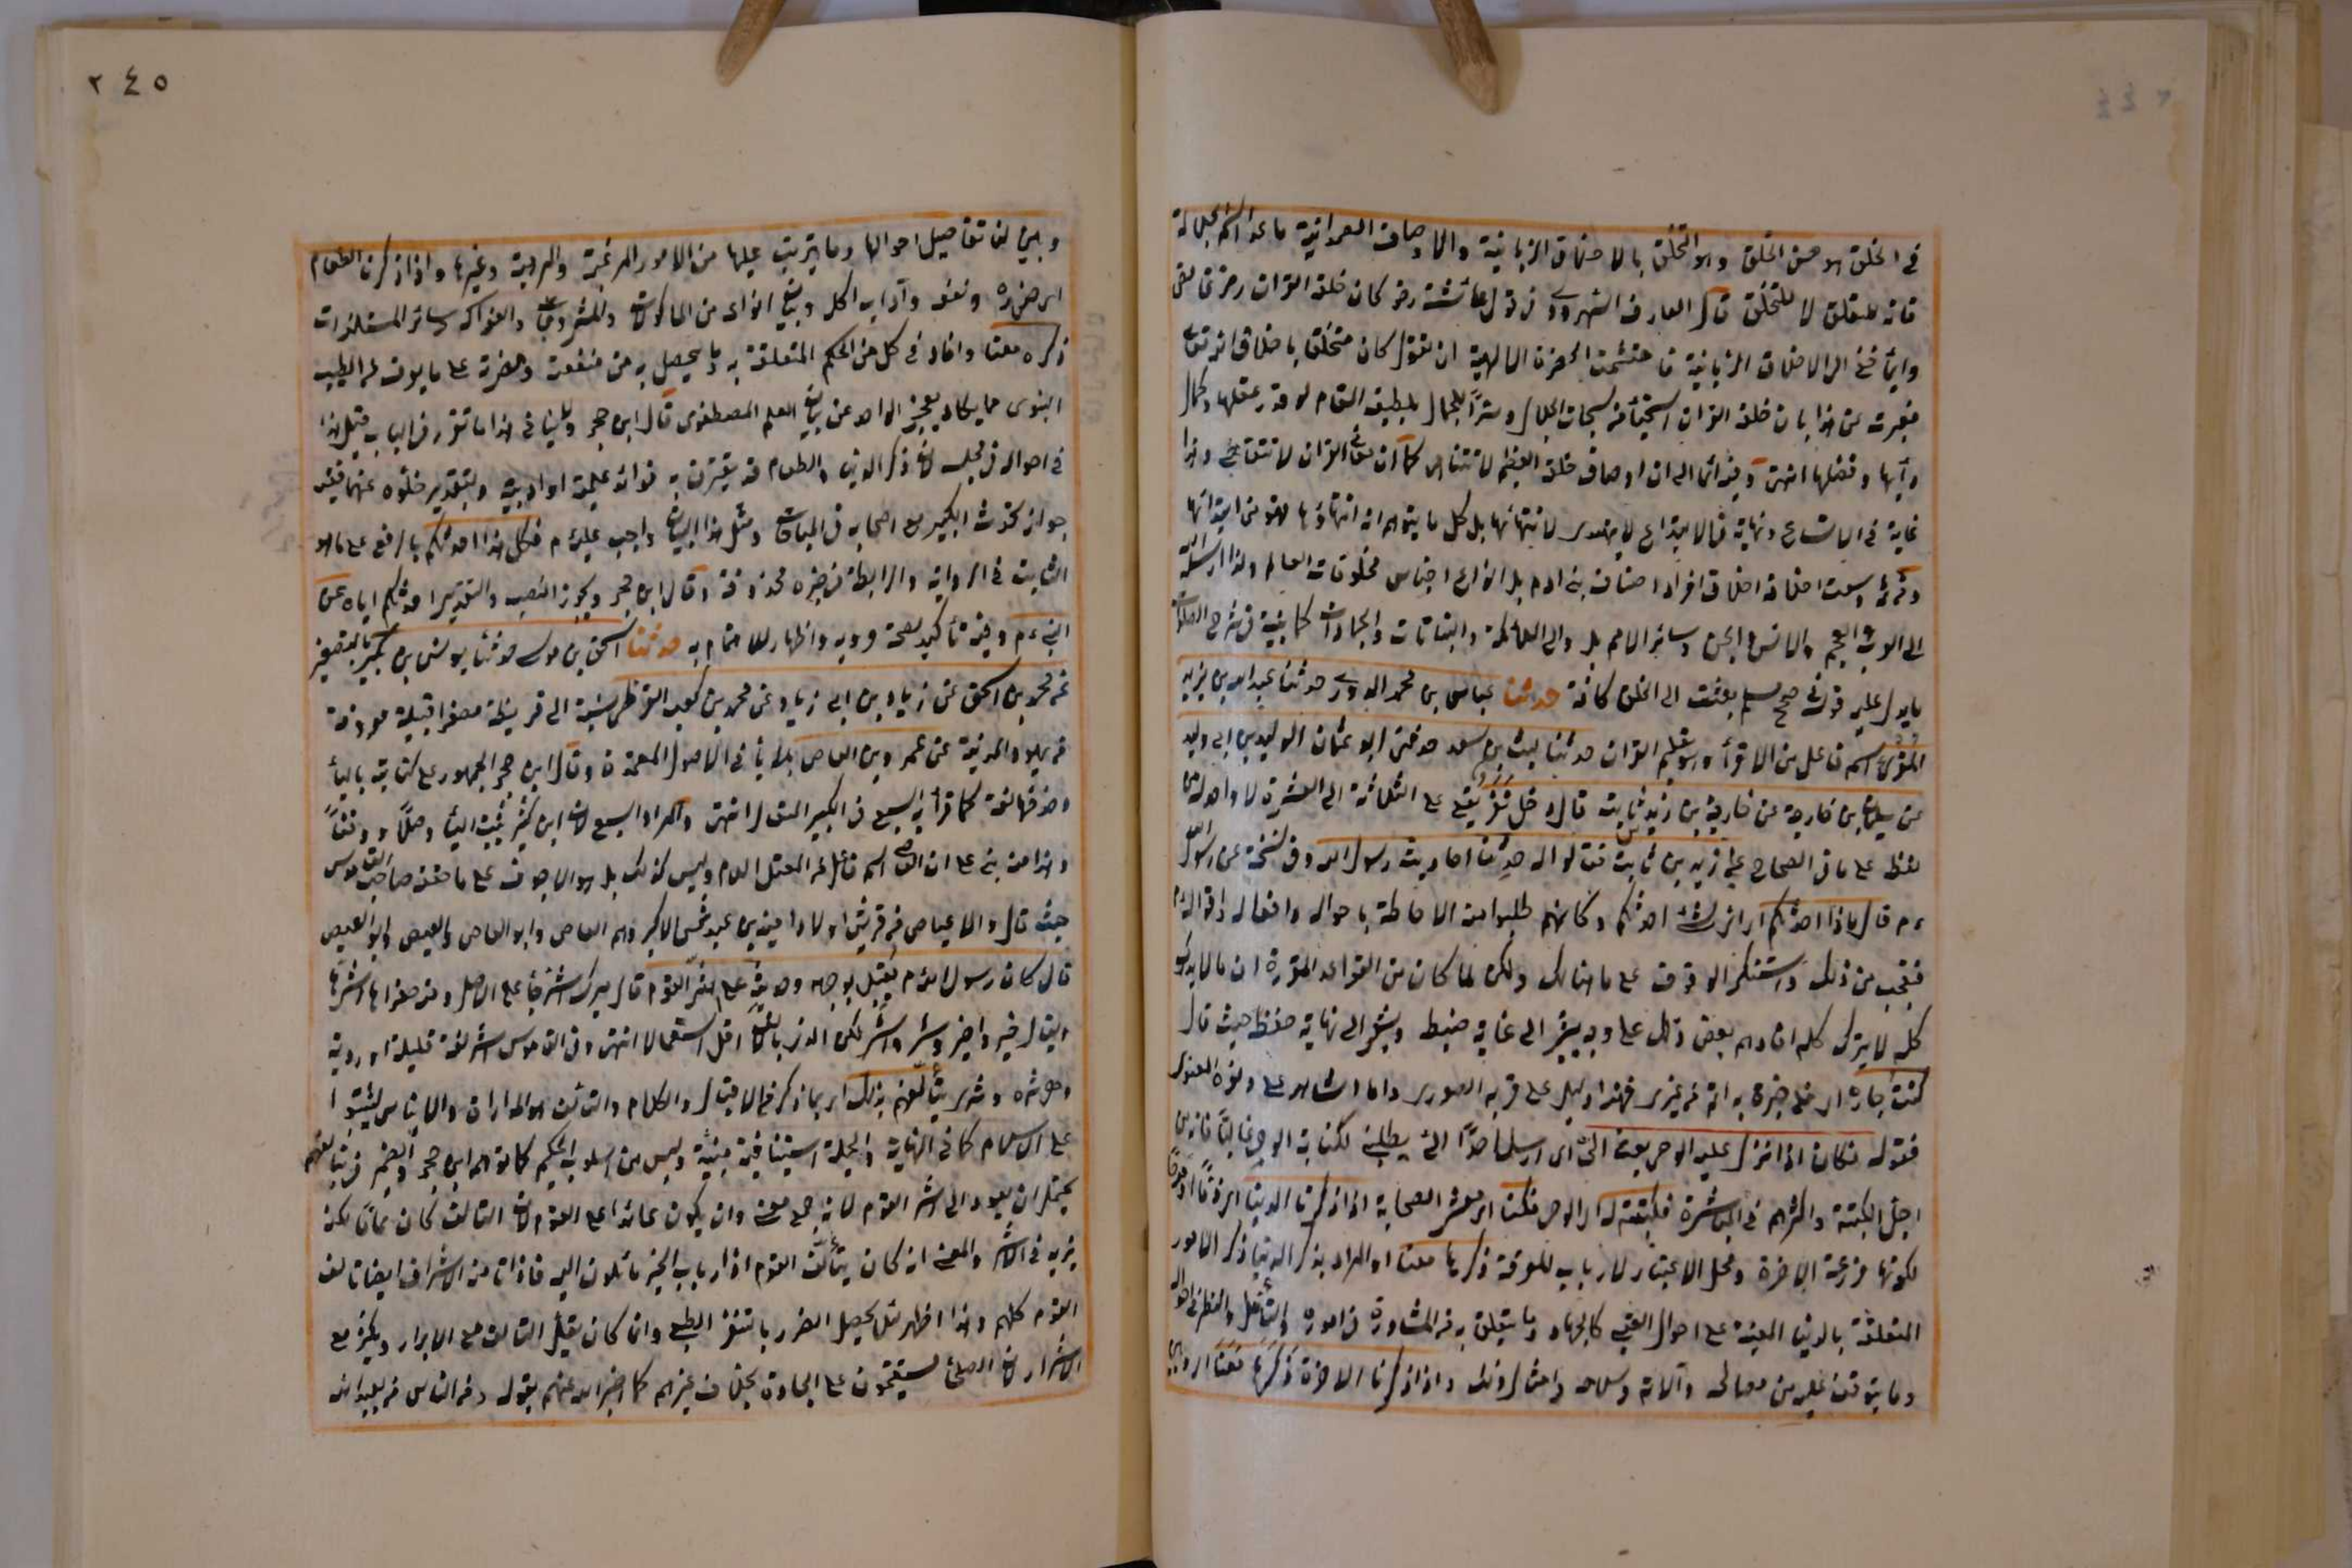 في الخلق هو حسن الخلق وهو التخلق بالاخلاق الربانية والاوصاف الصمدانية ما عدا اسم الجلالة
فانه للتعلق لا للتخلق قال العارف السهروردي في قول عائشة رض كان خلقه القرآن رمز غامض
وايماء خفي الى الاخلاق الربانية فاحتشمت الحضرة الالهية ان تقول كان متخلقا باخلاق الله تعالى
فعبرت عن هذا بان خلقه القرآن استحياء من سبحات الجلال وسترا للحال بلطيف المقام لوفور عقلها وكمال
ادبها وفضلها انتهى وفيه ايماء الى ان اوصاف خلقه العظيم لا تتناهى كما ان معاني القرآن لا تتقاضى وهذا
غاية في الاتساع ونهاية في الابتداع لا يهتدى لانتهائها بل كل ما يتوهم انه انتهاؤها فهو من ابتدائها
وسعت اخلاقه اخلاق افراد اصناف بني ادم بل انواع اجناس مخلوقات العالم ولذا ارسله الله
الى العرب والعجم والانس والجن وسائر الامم بل والى الملائكة والنباتات والجمادات كما بينته في شرح الصلوات
ما يدل عليه قوله في صحيح مسلم بعثت الى الخلق كافة حدثنا عباس بن محمد الدوري حدثنا عبد الله بن يزيد
المقرئ اسم فاعل من الاقراء وهو تعليم القرآن حدثنا ليث بن سعد حدثني ابو عثمان الوليد بن ابي وليد
عن سليمان بن خارجة عن خارجة بن زيد بن ثابت قال دخل نفر يقع على الثلاثة الى العشرة لا واحد له من
لفظه على ما في الصحاح على زيد بن ثابت فقالوا له حدثنا احاديث رسول الله وفي نسخة عن رسول الله
ءم قال ماذا احدثكم اى اي شئ احدثكم وكانهم طلبوا منه الاحاطة باحواله وافعاله واقواله ءم
فتعجب من ذلك واستنكر الوقوف على ما هنالك ولكن لما كان من القواعد المقررة ان ما لا يدرك
كله لا يترك كله افادهم بعض ذلك على وجه يشير الى غاية ضبط ويشعر الى نهاية حفظ حيث قال
كنت جاره اى فعلى خبرة به اتم من غيري فهذا دليل على قربه الصوري واما الشاهد على دنوه المعنوي
فقوله فكان اذا نزل عليه الوحي بعث الي اى ارسل احدا الي يطلبني لكتابة الوحي غالبا فانه من
اجل الكتبة واكثرهم في المباشرة فكتبته له اى الوحي فكنا اى معشر الصحابة اذا ذكرنا الدنيا
لكونها مزرعة الآخرة ومحل الاعتبار لارباب المعرفة ذكرها معنا او المراد بذكر الدنيا ذكر الامور
المتعلقة بالدنيا المعينة على احوال العقبى كالجهاد وما يتعلق به من المشاورة في اموره والتأمل والنظر في احواله
وما يتوقف عليه من مصالحه وآلاته وسلاحه وامثال ذلك واذا ذكرنا الآخرة ذكرها معنا
٢٤٥
وبين لنا تفاصيل احوالها وما يترتب عليها من الامور المرغبة والمرهبة وغيرها واذا ذكرنا الطعام
اى ضرره ونفعه وآداب اكله وبيان انواعه من المأكولات والمشروبات والفواكه وسائر المستلذات
ذكره معنا وافاد في كل من الحكم المتعلقة به وما يحصل به من منفعته ومضرته على ما يعرف من الطب
النبوي مما يكاد يعجز الواحد عن بيان العلم المصطفوي قال ابن حجر ولا ينافي هذا ما تقرر في الباب قبل هذا
في احواله في مجلسه لان ذكر الدنيا والطعام قد يقترن به فوائد علمية او ادبية وبتقدير خلوه عنهما ففيه
جواز تحدث الكبير مع اصحابه في المباحات ومثل هذا البيان واجب عليه ءم فكل هذا احدثكم بالرفع على ما هو
الثابت في الرواية والرابطة في خبره محذوفة وقال ابن حجر ويجوز النصب والتقدير احدثكم اياه عن
النبي ءم وفيه تأكيد لصحة مرويه واظهار للاهتمام به حدثنا اسحق بن موسى حدثنا يونس بن بكير بالتصغير
عن محمد بن اسحق عن زياد بن ابي زياد عن محمد بن كعب القرظي نسبة الى قريظة مصغرا قبيلة معروفة
من يهود المدينة عن عمرو بن العاص بلا ياء في الاصول المعتمدة وقال ابن حجر الجمهور على كتابته بالياء
وحذفها لغة كما قرأ به السبع في الكبير المتعال انتهى والمراد السبع لان ابن كثير يثبت الياء وصلا ووقفا
وهذا منه بنى على ان العاص اسم فاعل من المعتل اللام وليس كذلك بل هو الاجوف على ما حققه صاحب القاموس
حيث قال والاعياص من قريش اولاد امية بن عبد شمس الاكبر وهم العاص وابو العاص والعيص وابو العيص
قال كان رسول الله ءم يقبل بوجهه وحديثه على اشر القوم قال ميرك اشر جاء على الاصل
يقال خير واخير وشر واشر لكن الذي بالالف اقل استعمالا انتهى وفي القاموس اشر لغة قليلة او ردية
وهو شره وشرى يتألفهم بذلك اى بما ذكر من الاقبال والكلام والتألف هو المداراة والايناس ليثبتوا
على الاسلام كما في النهاية والجملة استينافية مبينة وليس من اسلوب الحكيم كما توهم ابن حجر والضمير في يتألفهم
يحتمل ان يعود الى اشر القوم لانه جمع معنى وان يكون عائدا على القوم لان التألف كان عاما لكنه
يزيد في الاشر والمعنى انه كان يتألف القوم اذ ارباب الخير مائلون اليه فاذا تألف الاشرار ايضا تألف
القوم كلهم وهذا اظهر لئلا يحصل الضرر بالتنفر الطبع وان كان يقلل التألف مع الابرار ويكثر مع
الاشرار لان الصلحاء مستقيمون على الجادة بخلاف غيرهم كما اخبر الله عنهم بقوله ومن الناس من يعبد الله